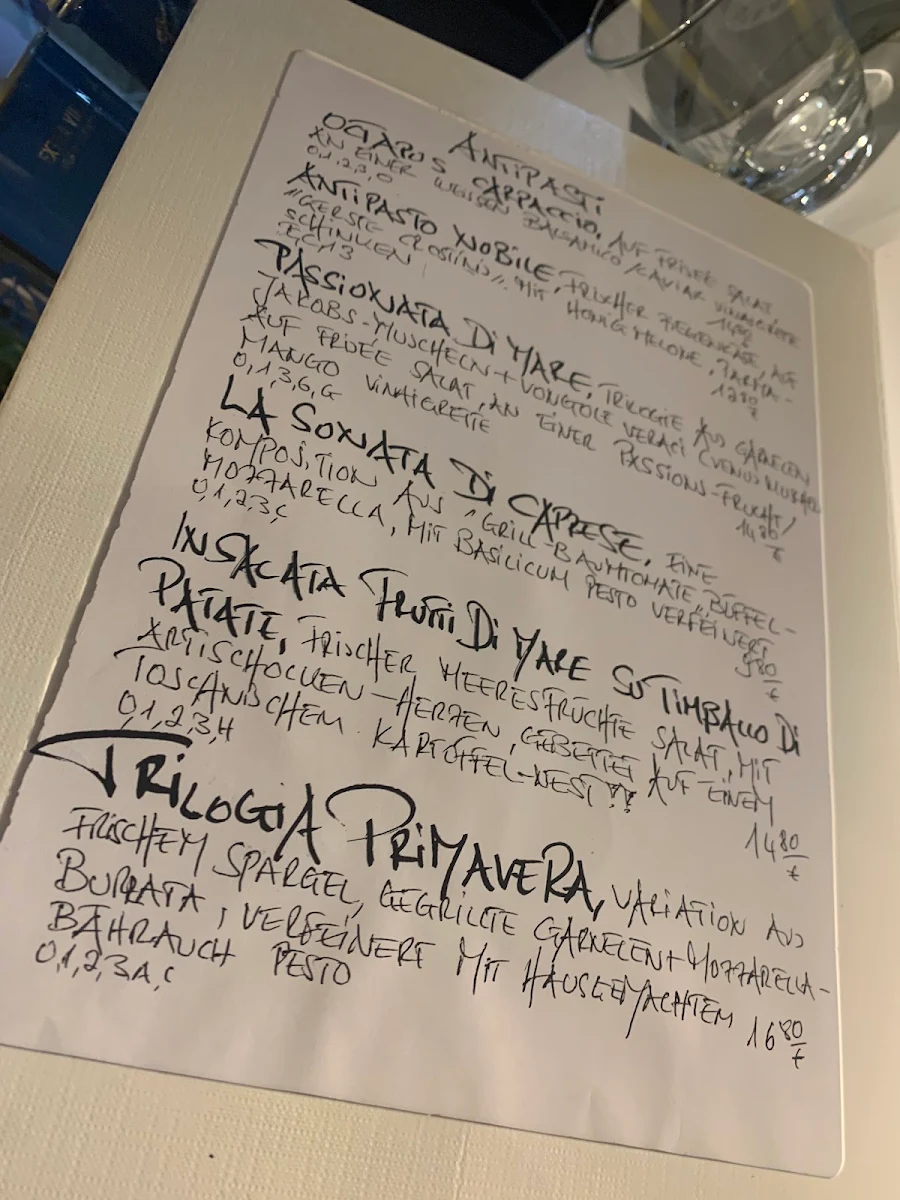 ANTIPASTI
OCTAPUS CARPACCIO, AUF FRISÉE SALAT
IN EINER WEISSEN BALSAMICO/CAVIAR VINAIGRETTE
0,1,2,3,0
ANTIPASTO NOBILE, FRISCHER ZIEGENKÄSE, AUF
"GERSTE CROSTINO", MIT HONIGMELONE, PARMA-
SCHINKEN 12 80 €
PASSIONATA Di MARE, TRILOGIE AUS GARNELEN
JAKOBS-MUSCHELN + VONGOLE VERACI (VENUSMUSCHEL
AUF FRIDÉE SALAT, AN EINER PASSIONS-FRUCHT/
MANGO VINAIGRETTE 14 80 €
0,1,3,6,G
LA SONATA Di CAPRESE, EINE
KOMPOSITION AUS "GRILL-BAUMTOMATE", BÜFFEL-
MOZZARELLA, MIT BASILICUM PESTO VERFEINERT
0,1,2,3,C 9 80 €
INSACATA FRUTTI Di MARE SU TIMBALLO Di
PATATE, FRISCHER MEERESFRÜCHTE SALAT, MIT
ARTISCHOCKEN-HERZEN, GEBETTET AUF EINEM
TOSCANISCHEM KARTOFFEL-NEST!!
0,1,2,3,H 14 80 €
TRILOGIA PRIMAVERA, VARIATION AUS
FRISCHEM SPARGEL, GEGRILLTE GARNELEN + MOZZARELLA-
BURRATA, VERFEINERT MIT HAUSGEMACHTEM
BÄHRAUCH PESTO 16 80 €
0,1,2,3A,C